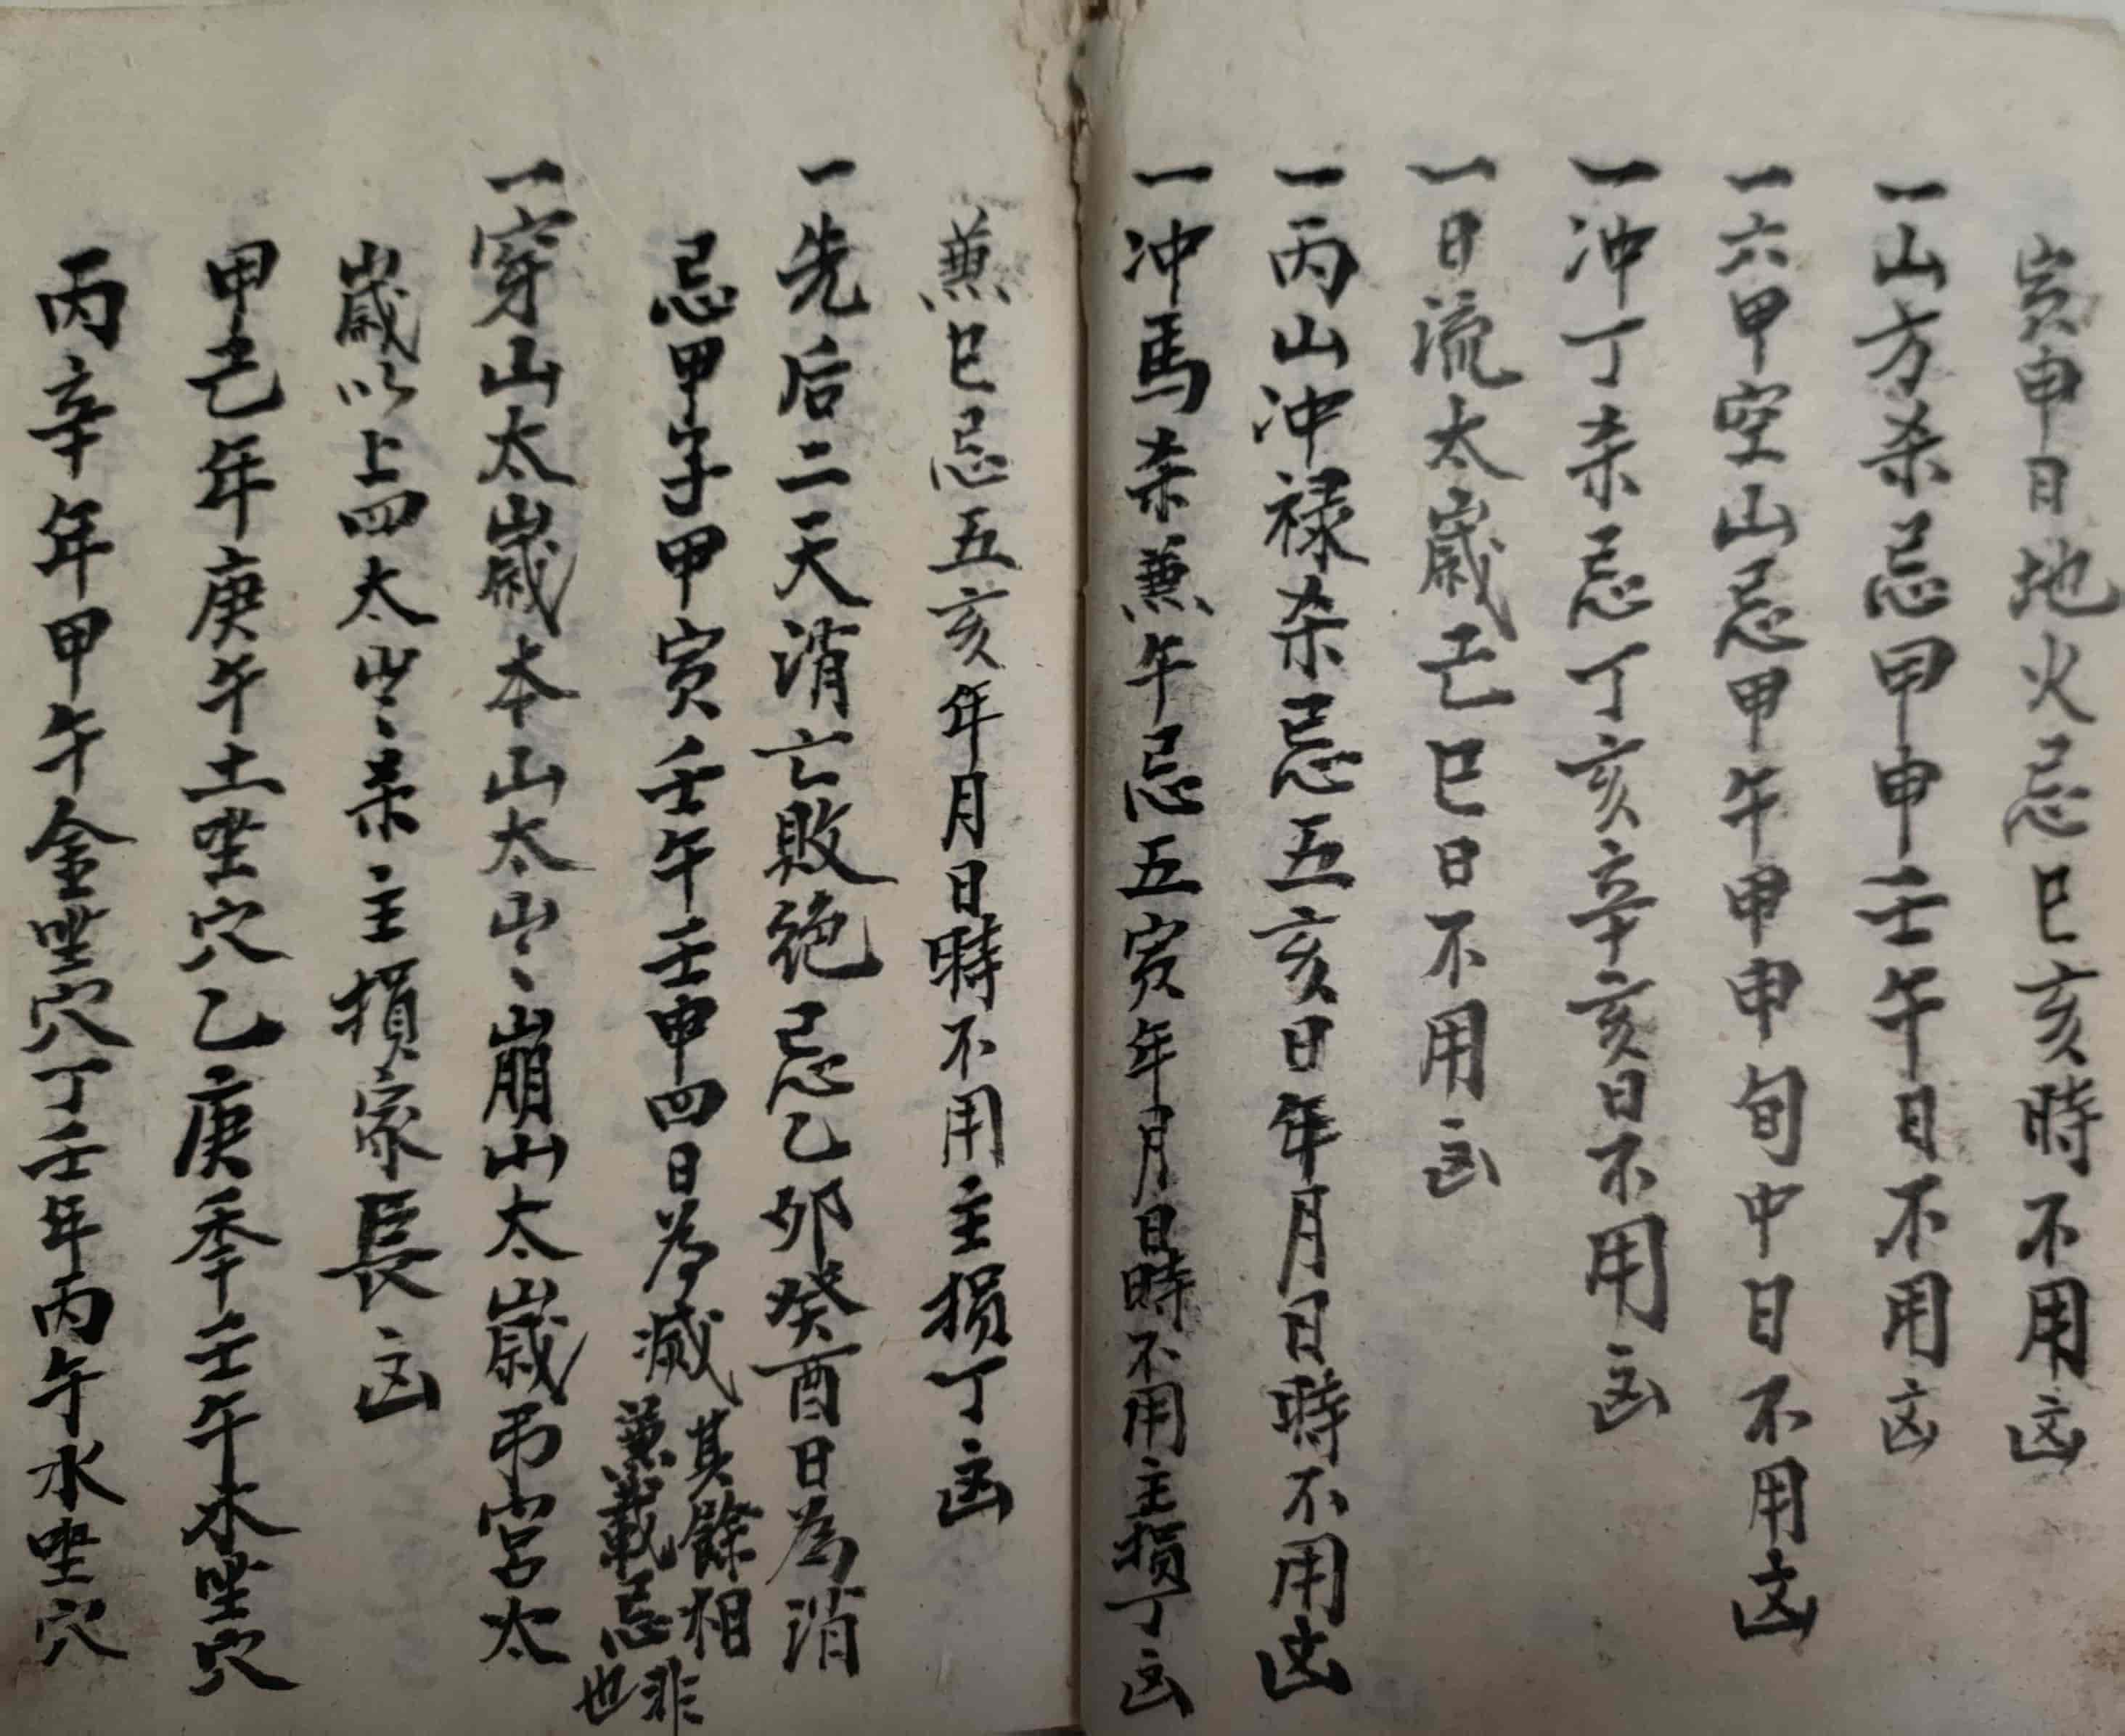 寅申日地火忌巳亥時不用凶
一山方杀忌甲申壬午日不用凶
一六甲空山忌甲午甲申旬中日不用凶
一冲丁杀忌丁亥辛亥日不用凶
一日流太歲忌巳日不用凶
一丙山冲禄杀忌五亥日年月日時不用凶
一冲馬杀兼午忌五寅年月日時不用主損丁凶
兼巳忌五亥年月日時不用主損丁凶
一先后二天消亡敗绝忌乙卯癸酉日為消
忌甲子甲寅壬午壬申四日為滅其餘相非
兼載忌也
一穿山太歲本山太山、崩山太歲弔宮太
歲以上四太山、杀主損家長凶
甲己年庚午土坐穴乙庚季壬午木坐穴
丙辛年甲午金坐穴丁壬年丙午水坐穴